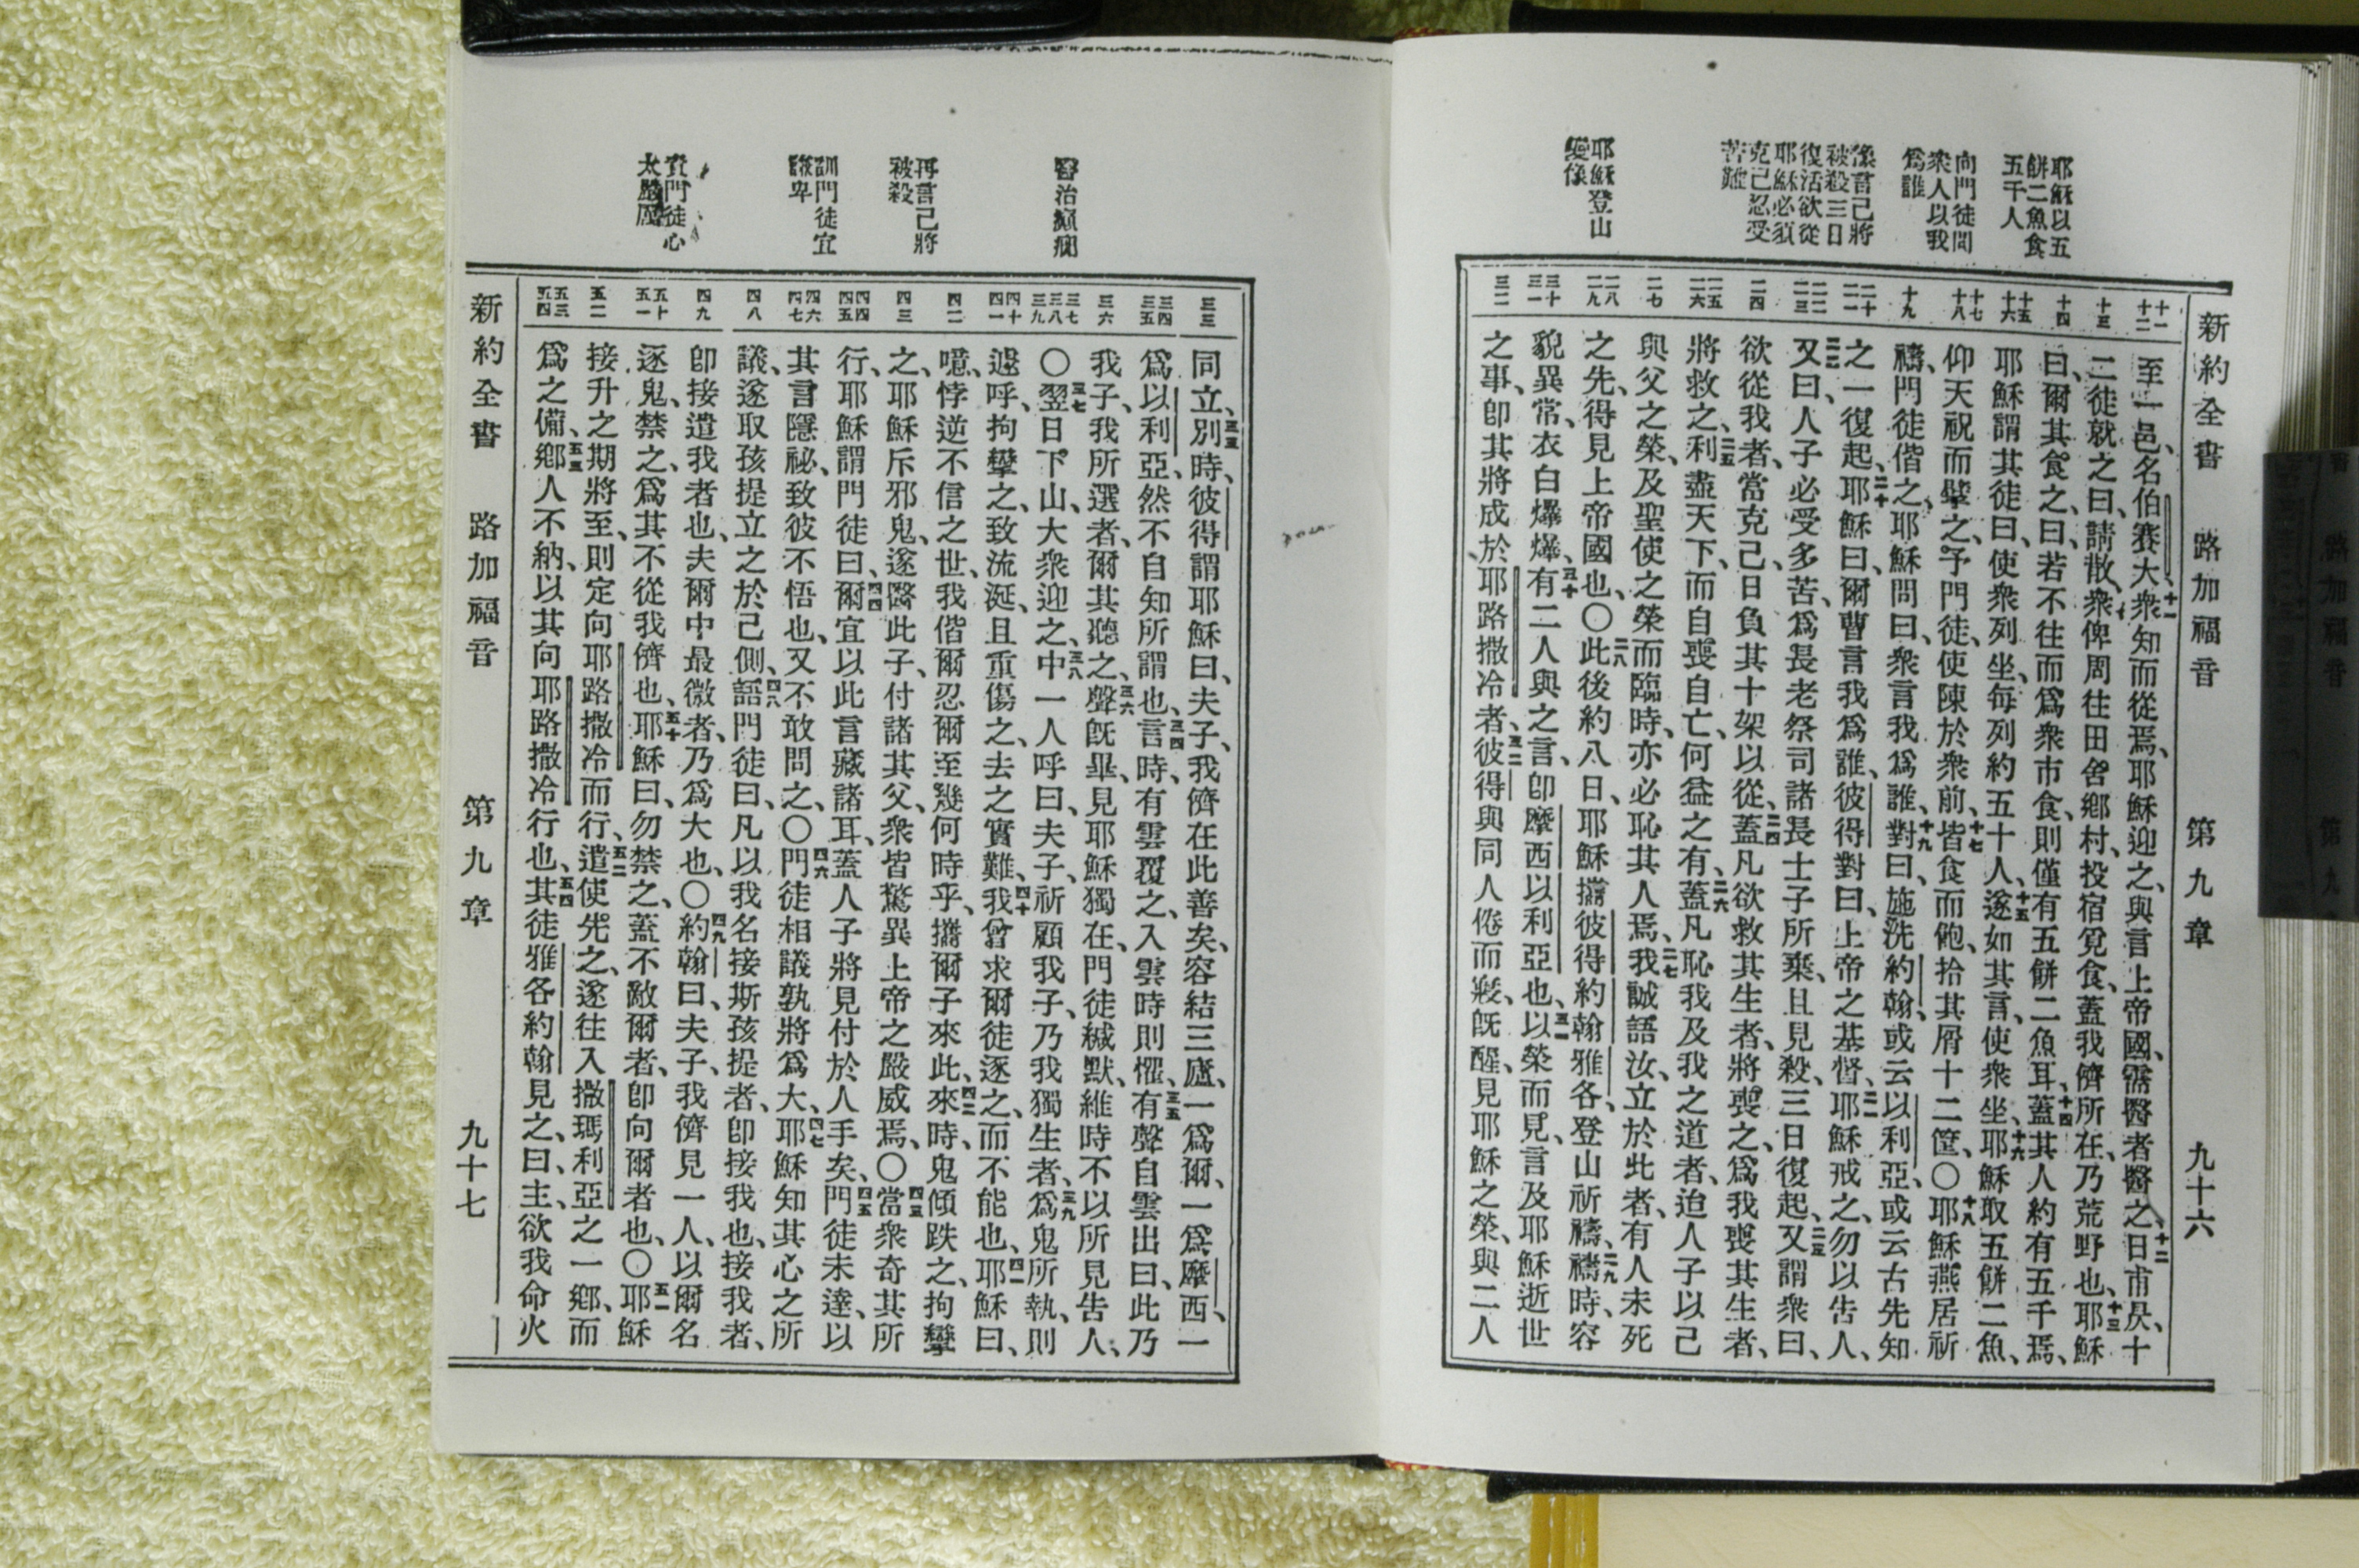 新約全書 路加福音 第九章 九十六
耶穌以五
餅二魚食
五千人
向門徒問
衆人以我
爲誰
豫言己將
被殺三日
復活欲從
耶穌必須
克己忍受
苦難
耶穌登山
變像
十一 十二
十三
十四
十五 十六
十七 十八
十九
二十 二一
二二 二三
二四
二五 二六
二七
二八 二九
三十 三一
三二
至一邑、名伯賽大、十一衆知而從焉、耶穌迎之、與言上帝國、需醫者醫之、十二日甫昃、十
二徒就之曰、請散衆、俾周往田舍鄉村、投宿覓食、蓋我儕所在、乃荒野也、十三耶穌
曰、爾其食之、曰、若不往而爲衆市食、則僅有五餅二魚耳、十四蓋其人約有五千焉、
耶穌謂其徒曰、使衆列坐、每列約五十人、十五遂如其言、使衆坐、十六耶穌取五餅二魚、
仰天祝而擘之、予門徒、使陳於衆前、十七皆食而飽、拾其屑十二筐、〇十八耶穌燕居祈
禱、門徒偕之、耶穌問曰、衆言我爲誰、十九對曰、施洗約翰、或云以利亞、或云古先知
之一復起、二十耶穌曰、爾曹言我爲誰、彼得對曰、上帝之基督、二一耶穌戒之、勿以告人、
二二又曰、人子必受多苦、爲長老祭司諸長士子所棄、且見殺、三日復起、二三又謂衆曰、
欲從我者、當克己、日負其十架以從、二四蓋凡欲救其生者、將喪之、爲我喪其生者、
將救之、二五利盡天下、而自喪自亡、何益之有、二六蓋凡恥我及我之道者、迨人子以己
與父之榮、及聖使之榮而臨時、亦必恥其人焉、二七我誠語汝、立於此者、有人未死
之先、得見上帝國也、〇二八此後約八日、耶穌攜彼得約翰雅各、登山祈禱、二九禱時、容
貌異常、衣白爆爆、三十有二人與之言、卽摩西以利亞也、三一以榮而見、言及耶穌逝世
之事、卽其將成於耶路撒冷者、三二彼得與同人倦而寢、旣醒、見耶穌之榮、與二人
醫治癲癇
再言己將
被殺
訓門徒宜
謙卑
責門徒心
太嚴厲
三三
三四 三五
三六
三七 三八 三九
四十 四一
四二
四三
四四 四五
四六 四七
四八
四九
五十 五一
五二
五三 五四
同立、三三別時、彼得謂耶穌曰、夫子、我儕在此善矣、容結三廬、一爲爾、一爲摩西、一
爲以利亞、然不自知所謂也、三四言時、有雲覆之、入雲時則懼、三五有聲自雲出曰、此乃
我子、我所選者、爾其聽之、三六聲旣畢、見耶穌獨在、門徒緘默、維時不以所見告人、
〇三七翌日下山、大衆迎之、三八中一人呼曰、夫子、祈顧我子、乃我獨生者、三九爲鬼所執、則
遽呼、拘攣之、致流涎、且重傷之、去之實難、四十我曾求爾徒逐之、而不能也、四一耶穌曰、
噫、悖逆不信之世、我偕爾忍爾至幾何時乎、攜爾子來此、四二來時、鬼傾跌之、拘攣
之、耶穌斥邪鬼、遂醫此子、付諸其父、衆皆驚異上帝之嚴威焉、〇四三當衆奇其所
行、耶穌謂門徒曰、四四爾宜以此言藏諸耳、蓋人子將見付於人手矣、四五門徒未達、以
其言隱祕、致彼不悟也、又不敢問之、〇四六門徒相議孰將爲大、四七耶穌知其心之所
議、遂取孩提立之於己側、四八語門徒曰、凡以我名接斯孩提者、卽接我也、接我者、
卽接遣我者也、夫爾中最微者、乃爲大也、〇四九約翰曰、夫子、我儕見一人、以爾名
逐鬼、禁之、爲其不從我儕也、五十耶穌曰、勿禁之、蓋不敵爾者、卽向爾者也、〇五一耶穌
接升之期將至、則定向耶路撒冷而行、五二遣使先之、遂往入撒瑪利亞之一鄉、而
爲之備、五三鄉人不納、以其向耶路撒冷行也、五四其徒雅各約翰見之、曰、主、欲我命火
新約全書 路加福音 第九章 九十七